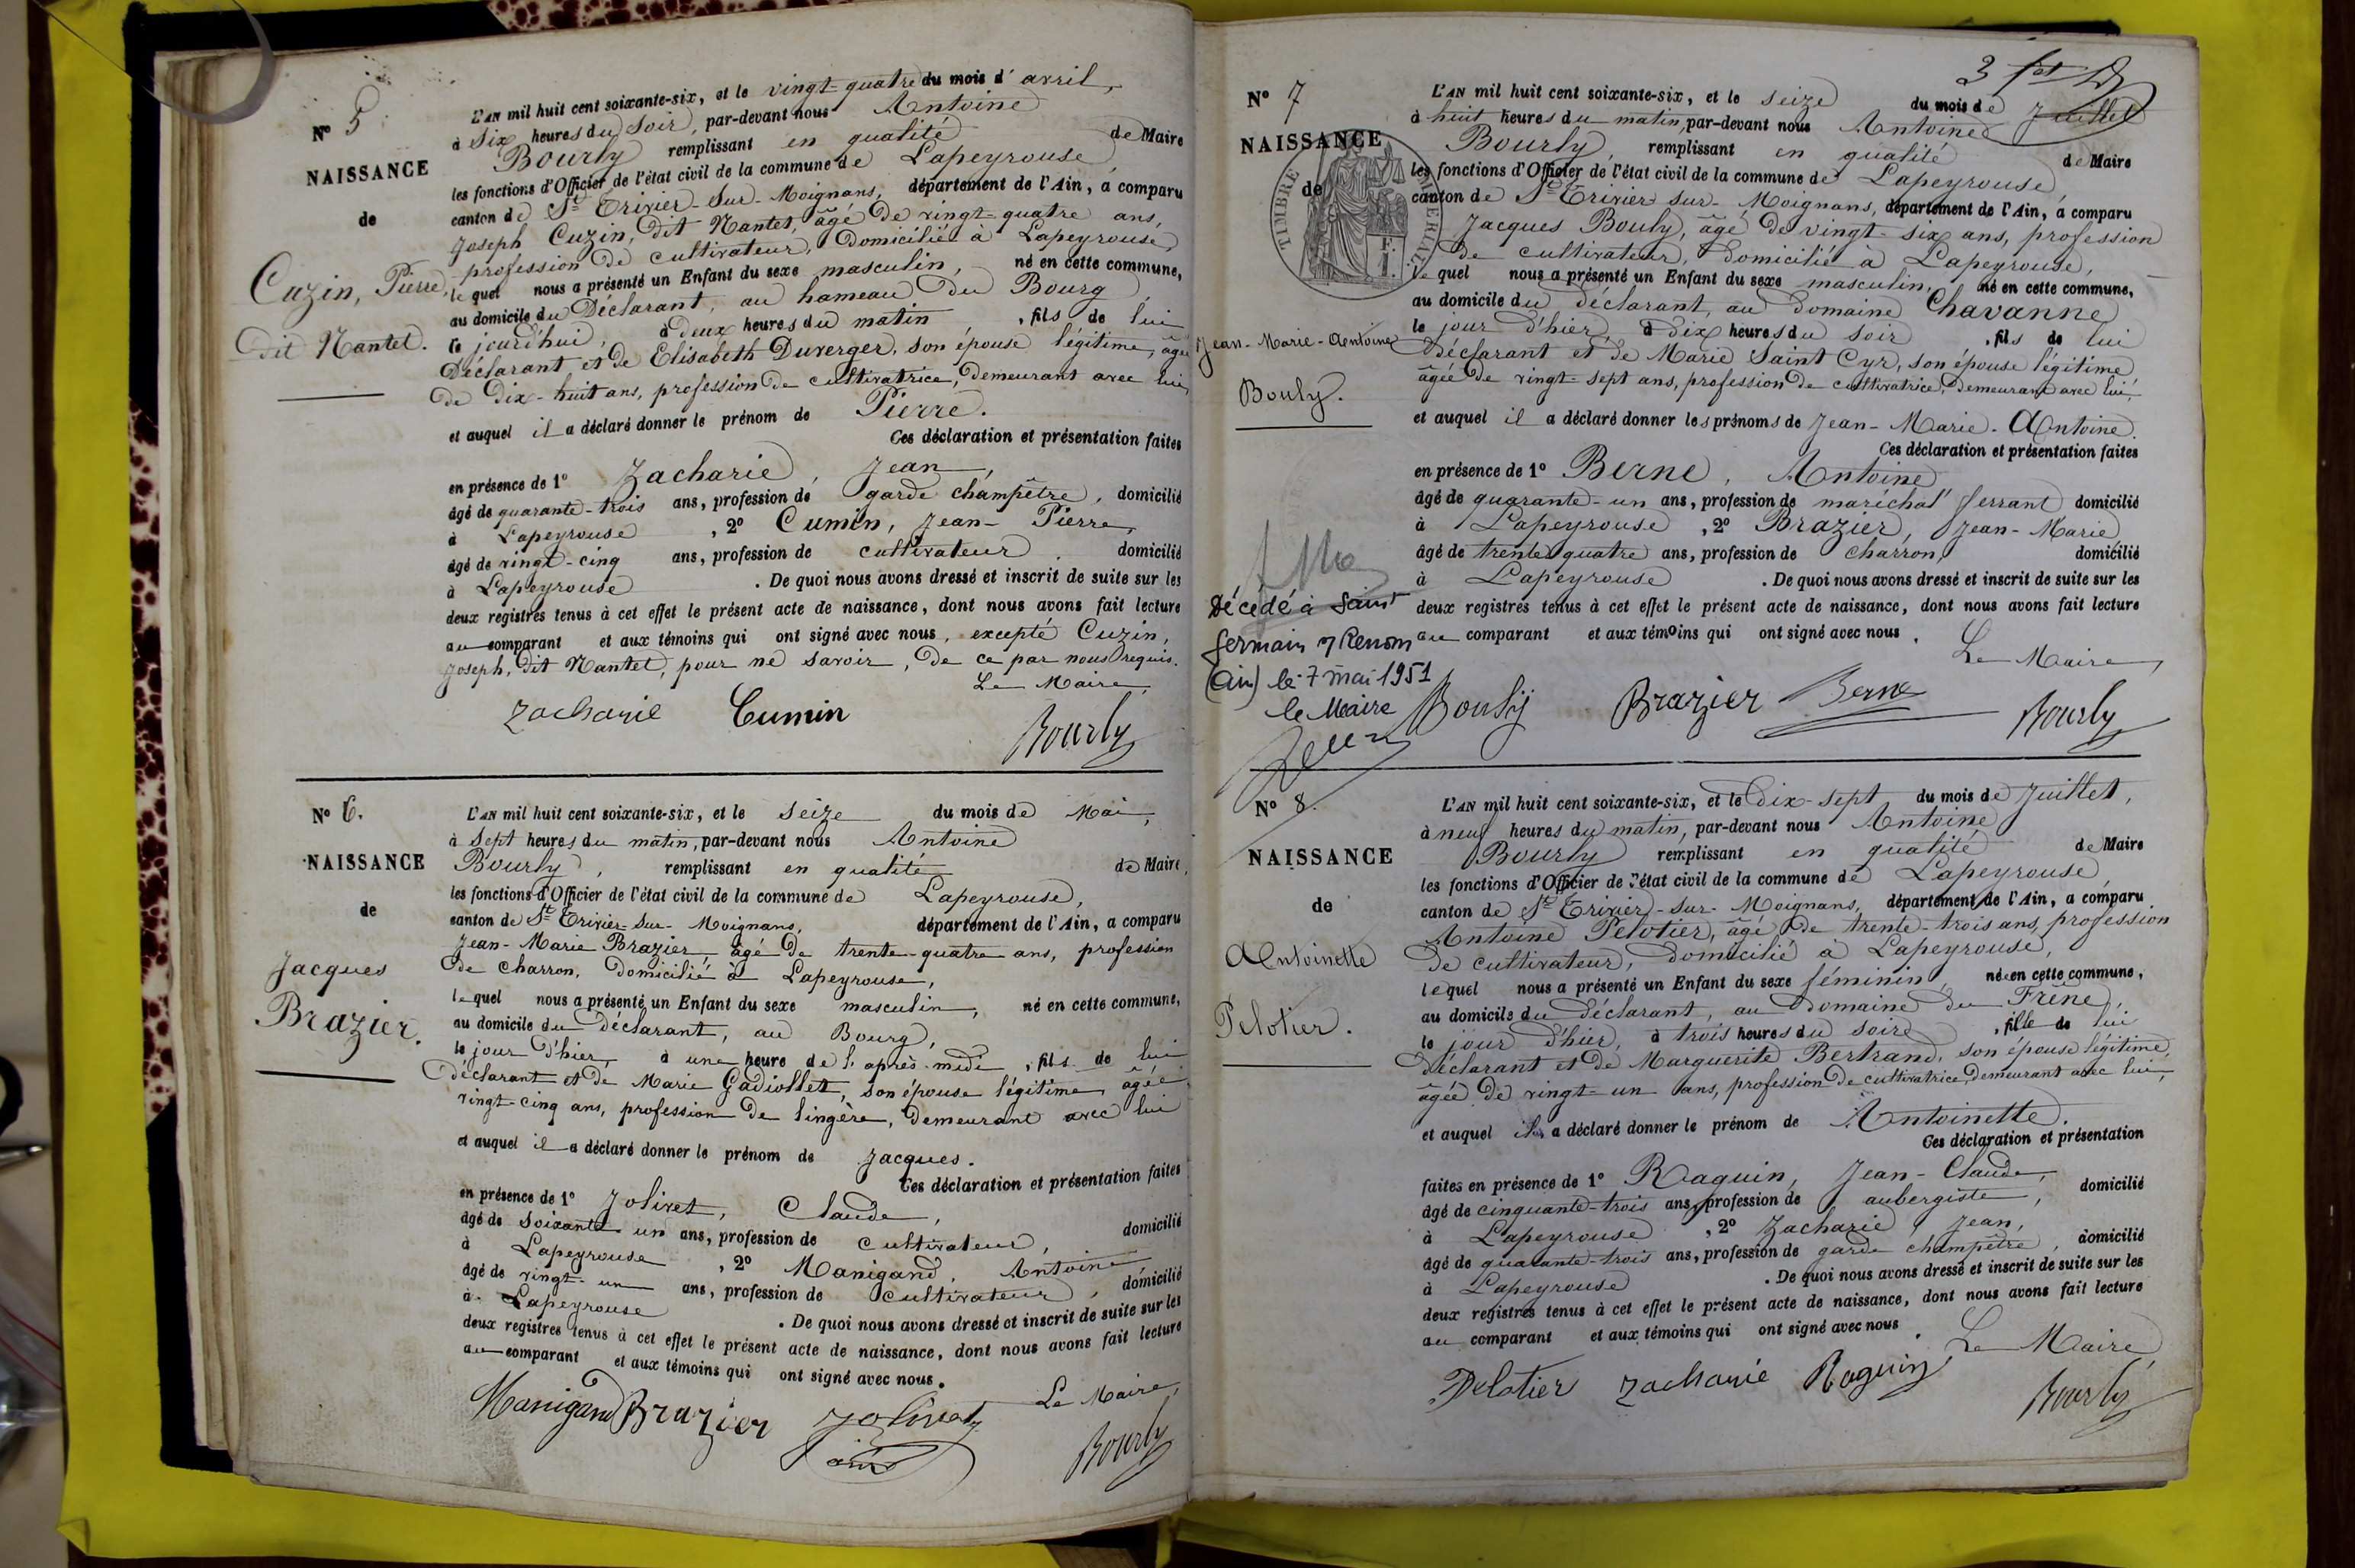 N° 5
NAISSANCE
de
Cuzin, Pierre,
dit Nantet.
L'AN mil huit cent soixante-six, et le vingt-quatre du mois d'avril,
à Six heures du Soir, par-devant nous Antoine
Bourly remplissant en qualité de Maire
les fonctions d'Officier de l'état civil de la commune de Lapeyrouse
canton de St Trivier-Sur-Moignans, département de l'Ain, a comparu
Joseph Cuzin, dit Nantet, âgé de vingt-quatre ans,
profession de cultivateur, domicilié à Lapeyrouse,
lequel nous a présenté un Enfant du sexe masculin, né en cette commune,
au domicile du Déclarant, au hameau du Bourg
ce jourd'hui, à deux heures du matin, fils de lui
Déclarant et de Elisabeth Duverger, son épouse légitime, âgée
de Dix-huit ans, profession de cultivatrice, demeurant avec lui,
et auquel il a déclaré donner le prénom de Pierre.
Ces déclaration et présentation faites
en présence de 1° Zacharie, Jean,
âgé de quarante-trois ans, profession de garde champêtre, domicilié
à Lapeyrouse, 2° Cumin, Jean-Pierre,
âgé de vingt-cinq ans, profession de cultivateur domicilié
à Lapeyrouse. De quoi nous avons dressé et inscrit de suite sur les
deux registres tenus à cet effet le présent acte de naissance, dont nous avons fait lecture
au comparant et aux témoins qui ont signé avec nous, excepté Cuzin,
Joseph, dit Nantet, pour ne savoir, de ce par nous requis.
Le Maire,
Zacharie Cumin
Bourly
N° 6.
NAISSANCE
de
Jacques
Brazier.
L'AN mil huit cent soixante-six, et le seize du mois de Mai,
à Sept heures du matin, par-devant nous Antoine
Bourly, remplissant en qualité de Maire,
les fonctions d'Officier de l'état civil de la commune de Lapeyrouse,
canton de St Trivier-Sur-Moignans, département de l'Ain, a comparu
Jean-Marie Brazier, âgé de trente-quatre ans, profession
de charron, domicilié à Lapeyrouse,
lequel nous a présenté un Enfant du sexe masculin, né en cette commune,
au domicile du Déclarant, au Bourg,
le jour d'hier, à une heure de l'après-midi, fils de lui
déclarant et de Marie Gadiollet, son épouse légitime âgée
vingt-cinq ans, profession de lingère, demeurant avec lui
et auquel il a déclaré donner le prénom de Jacques.
Ces déclaration et présentation faites
en présence de 1° Jolivet, Claude,
âgé de soixante un ans, profession de cultivateur, domicilié
à Lapeyrouse, 2° Manigand, Antoine
âgé de vingt-un ans, profession de cultivateur, domicilié
à Lapeyrouse. De quoi nous avons dressé et inscrit de suite sur les
deux registres tenus à cet effet le présent acte de naissance, dont nous avons fait lecture
au comparant et aux témoins qui ont signé avec nous.
Le Maire,
Manigand Brazier Jolivet
Bourly
3
N° 7
NAISSANCE
de
TIMBRE IMPERIAL
Jean-Marie-Antoine
Bouly.
Décédé à Saint
Germain s/Renom
(Ain) le 7 mai 1951
le Maire
L'AN mil huit cent soixante-six, et le seize du mois de Juillet
à huit heures du matin, par-devant nous Antoine
Bourly, remplissant en qualité de Maire
les fonctions d'Officier de l'état civil de la commune de Lapeyrouse
canton de St Trivier Sur-Moignans, département de l'Ain, a comparu
Jacques Bouly, âgé de vingt-six ans, profession
de cultivateur, domicilié à Lapeyrouse,
lequel nous a présenté un Enfant du sexe masculin, né en cette commune,
au domicile du déclarant, au domaine Chavanne
le jour d'hier, à dix heures du soir, fils de lui
déclarant et de Marie Saint Cyr, son épouse légitime
âgée de vingt-sept ans, profession de cultivatrice, demeurant avec lui,
et auquel il a déclaré donner les prénoms de Jean-Marie-Antoine.
Ces déclaration et présentation faites
en présence de 1° Berne, Antoine
âgé de quarante-un ans, profession de maréchal ferrant domicilié
à Lapeyrouse, 2° Brazier, Jean-Marie
âgé de trente quatre ans, profession de charron, domicilié
à Lapeyrouse. De quoi nous avons dressé et inscrit de suite sur les
deux registres tenus à cet effet le présent acte de naissance, dont nous avons fait lecture
au comparant et aux témoins qui ont signé avec nous.
Le Maire,
Bouly Brazier Berne
Bourly
N° 8.
NAISSANCE
de
Antoinette
Pelotier.
L'AN mil huit cent soixante-six, et le Dix-sept du mois de Juillet,
à neuf heures du matin, par-devant nous Antoine
Bourly remplissant en qualité de Maire
les fonctions d'Officier de l'état civil de la commune de Lapeyrouse,
canton de St Trivier-sur-Moignans, département de l'Ain, a comparu
Antoine Pelotier, âgé de trente-trois ans, profession
de cultivateur, domicilié à Lapeyrouse,
lequel nous a présenté un Enfant du sexe féminin, née en cette commune,
au domicile du déclarant, au domaine du Frêne,
le jour d'hier, à trois heures du soir, fille de lui
Déclarant et de Marguerite Bertrand, son épouse légitime,
âgée de vingt-un ans, profession de cultivatrice, demeurant avec lui,
et auquel il a déclaré donner le prénom de Antoinette.
Ces déclaration et présentation
faites en présence de 1° Raguin, Jean-Claude,
âgé de cinquante-trois ans, profession de aubergiste, domicilié
à Lapeyrouse, 2° Zacharie, Jean,
âgé de quarante-trois ans, profession de garde champêtre, domicilié
à Lapeyrouse. De quoi nous avons dressé et inscrit de suite sur les
deux registres tenus à cet effet le présent acte de naissance, dont nous avons fait lecture
au comparant et aux témoins qui ont signé avec nous.
Le Maire,
Pelotier Zacharie Raguin
Bourly